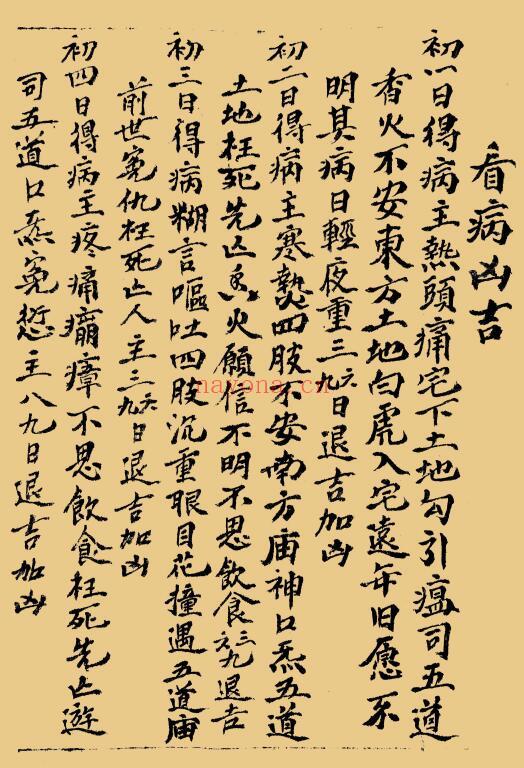 看病凶吉
初一日得病主熱頭痛宅下土地勾引瘟司五道
香火不安東方土地白虎入宅遠年旧愿不
明其病日輕夜重三六九日退吉加凶
初二日得病主寒熱四肢不安南方庙神口炁五道
土地枉死先亡香火願信不明不思飲食三六九退吉
初三日得病糊言嘔吐四肢沉重眼目花撞遇五道庙
前世冤仇枉死亡人主三六九日退吉加凶
初四日得病主疼痛瘟瘴不思飲食枉死先亡遊
司五道口炁冤愆主八九日退吉加凶
nayona.cn